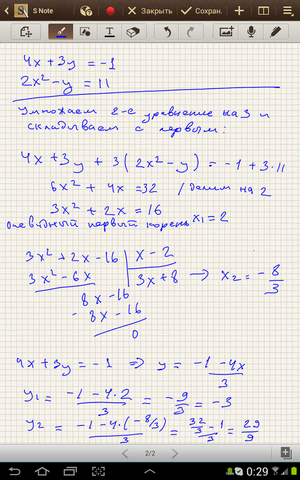 S Note
Закрыть
Сохран.
4x + 3y = -1
2x² - y = 11
Умножаем 2-е уравнение на 3 и
складываем с первым:
4x + 3y + 3(2x² - y) = -1 + 3·11
6x² + 4x = 32 / делим на 2
3x² + 2x = 16
Очевидный первый корень x₁ = 2
3x² + 2x - 16 | x - 2
3x² - 6x | 3x + 8 → x₂ = -8/3
8x - 16
- 8x - 16
0
4x + 3y = -1 ⇒ y = (-1 - 4x)/3
y₁ = (-1 - 4·2)/3 = -9/3 = -3
y₂ = (-1 - 4·(-8/3))/3 = (32/3 - 1)/3 = 29/9
2/2
0:29